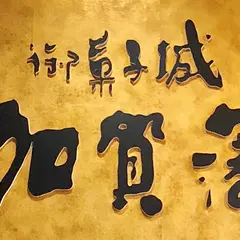 御菓子城
加賀藩